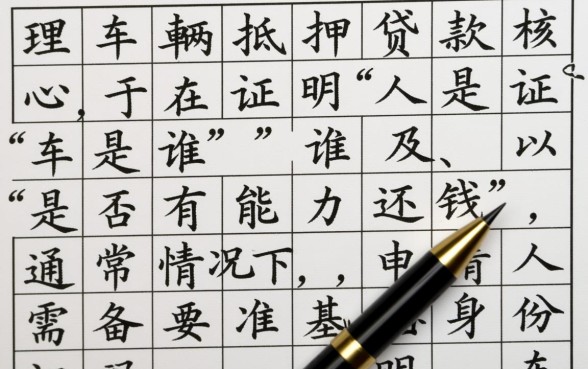 理车辆抵押贷款核
心,于在证明“人是证
“车是谁””谁及、以
“是否有能力还钱”,
通常情况下,,申请人
需备要准基身份